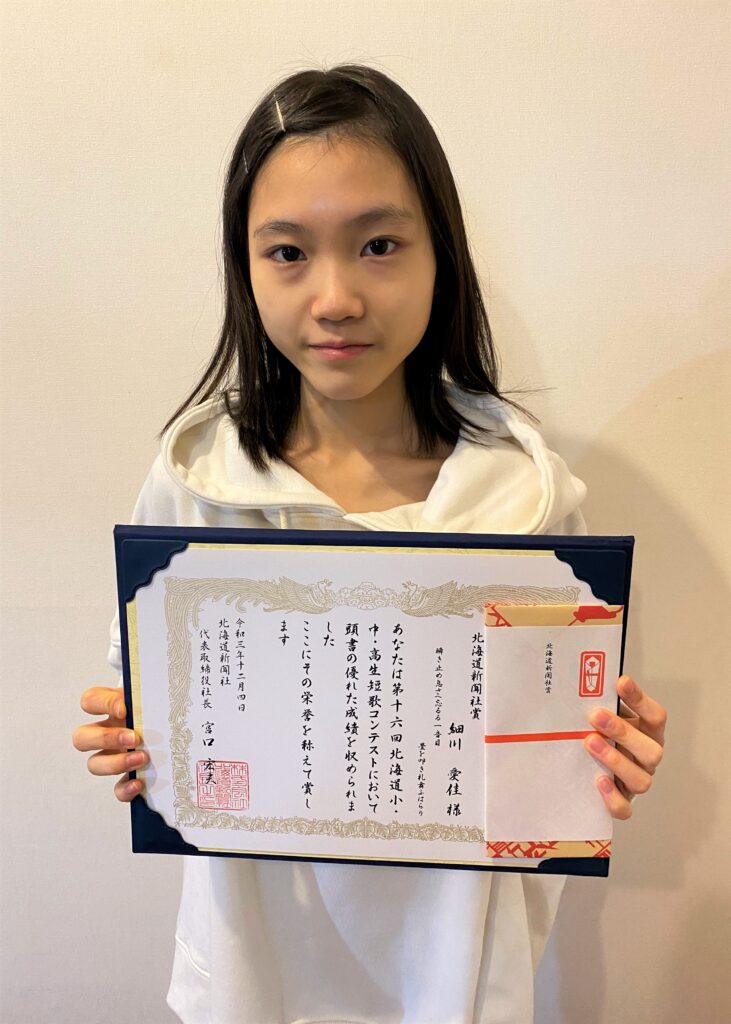 北海道新聞社賞
細川 愛佳 様
瞬き止め息さえ忘るる一音目
畳を叩き札舞ふはらり
あなたは第十六回北海道小・
中・高生短歌コンテストにおいて
頭書の優れた成績を収められま
した
ここにその栄誉を称えて賞し
ます
令和三年十二月四日
北海道新聞社
代表取締役社長 宮口 宏夫
北海道新聞社賞